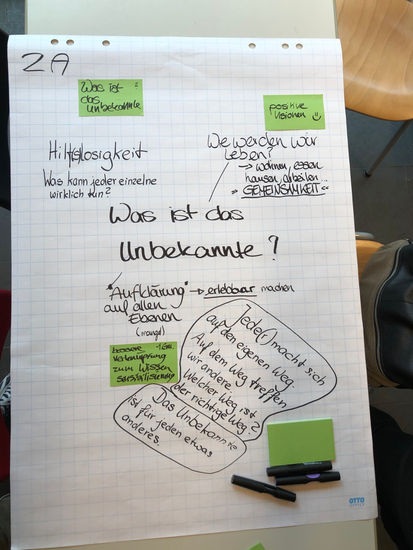 2A
Was ist
das
Unbekannte?
positive
Visionen
Hilflosigkeit
Was kann jeder einzelne
wirklich tun?
Wie werden wir
leben?
→ wohnen, essen
hausen, arbeiten...
GEMEINSAMKEIT
Was ist das
Unbekannte?
"Aufklärung" → erlebbar machen
auf allen
Ebenen
bessere
Verknüpfung
zum Wissen
Jede(r) macht sich
auf den eigenen Weg
Auf dem Weg treffen
wir andere
Welcher Weg ist
der richtige Weg?
Das Unbekannte
ist für jeden etwas
anderes.
OTTO
OFFICE